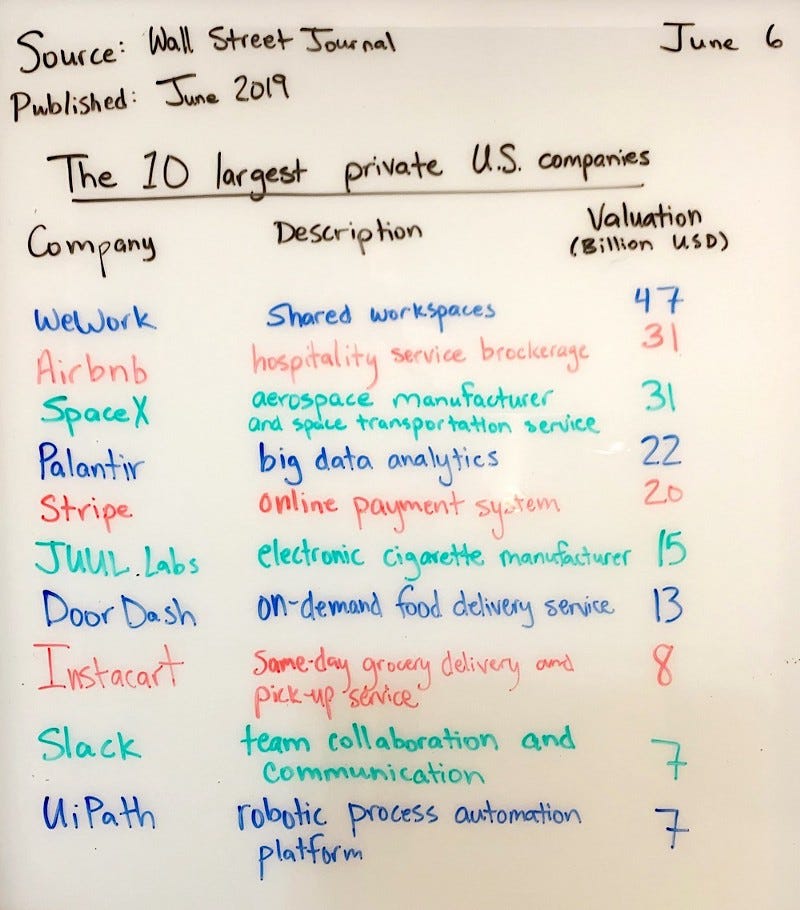 Source: Wall Street Journal June 6
Published: June 2019
The 10 largest private U.S. companies
Company Description Valuation
(Billion USD)
WeWork Shared workspaces 47
Airbnb hospitality service brockerage 31
SpaceX aerospace manufacturer 31
and space transportation service
Palantir big data analytics 22
Stripe online payment system 20
JUUL Labs electronic cigarette manufacturer 15
DoorDash on-demand food delivery service 13
Instacart Same-day grocery delivery and 8
pick-up service
Slack team collaboration and 7
communication
UiPath robotic process automation 7
platform